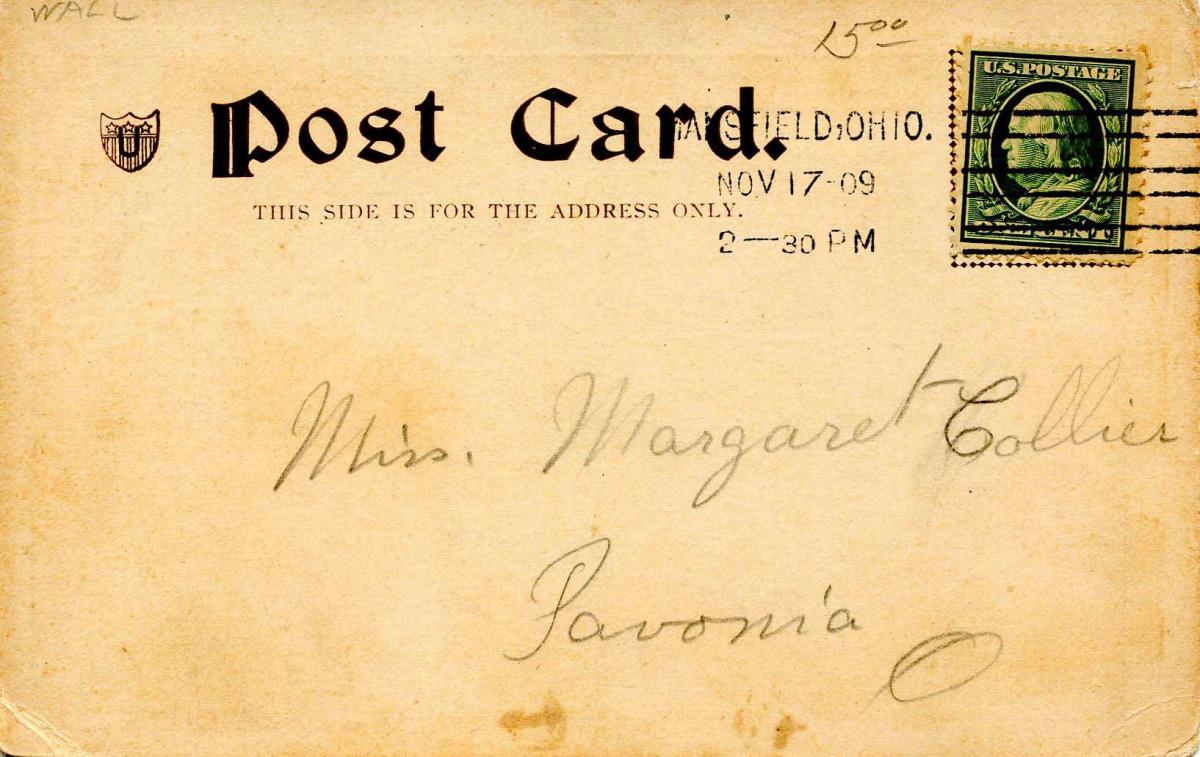 WALL
15⁰⁰
U
Post Card.
THIS SIDE IS FOR THE ADDRESS ONLY.
MANSFIELD, OHIO.
NOV 17-09
2-30 PM
U.S. POSTAGE
ONE CENT
Miss. Margaret Collier
Pavonia
O